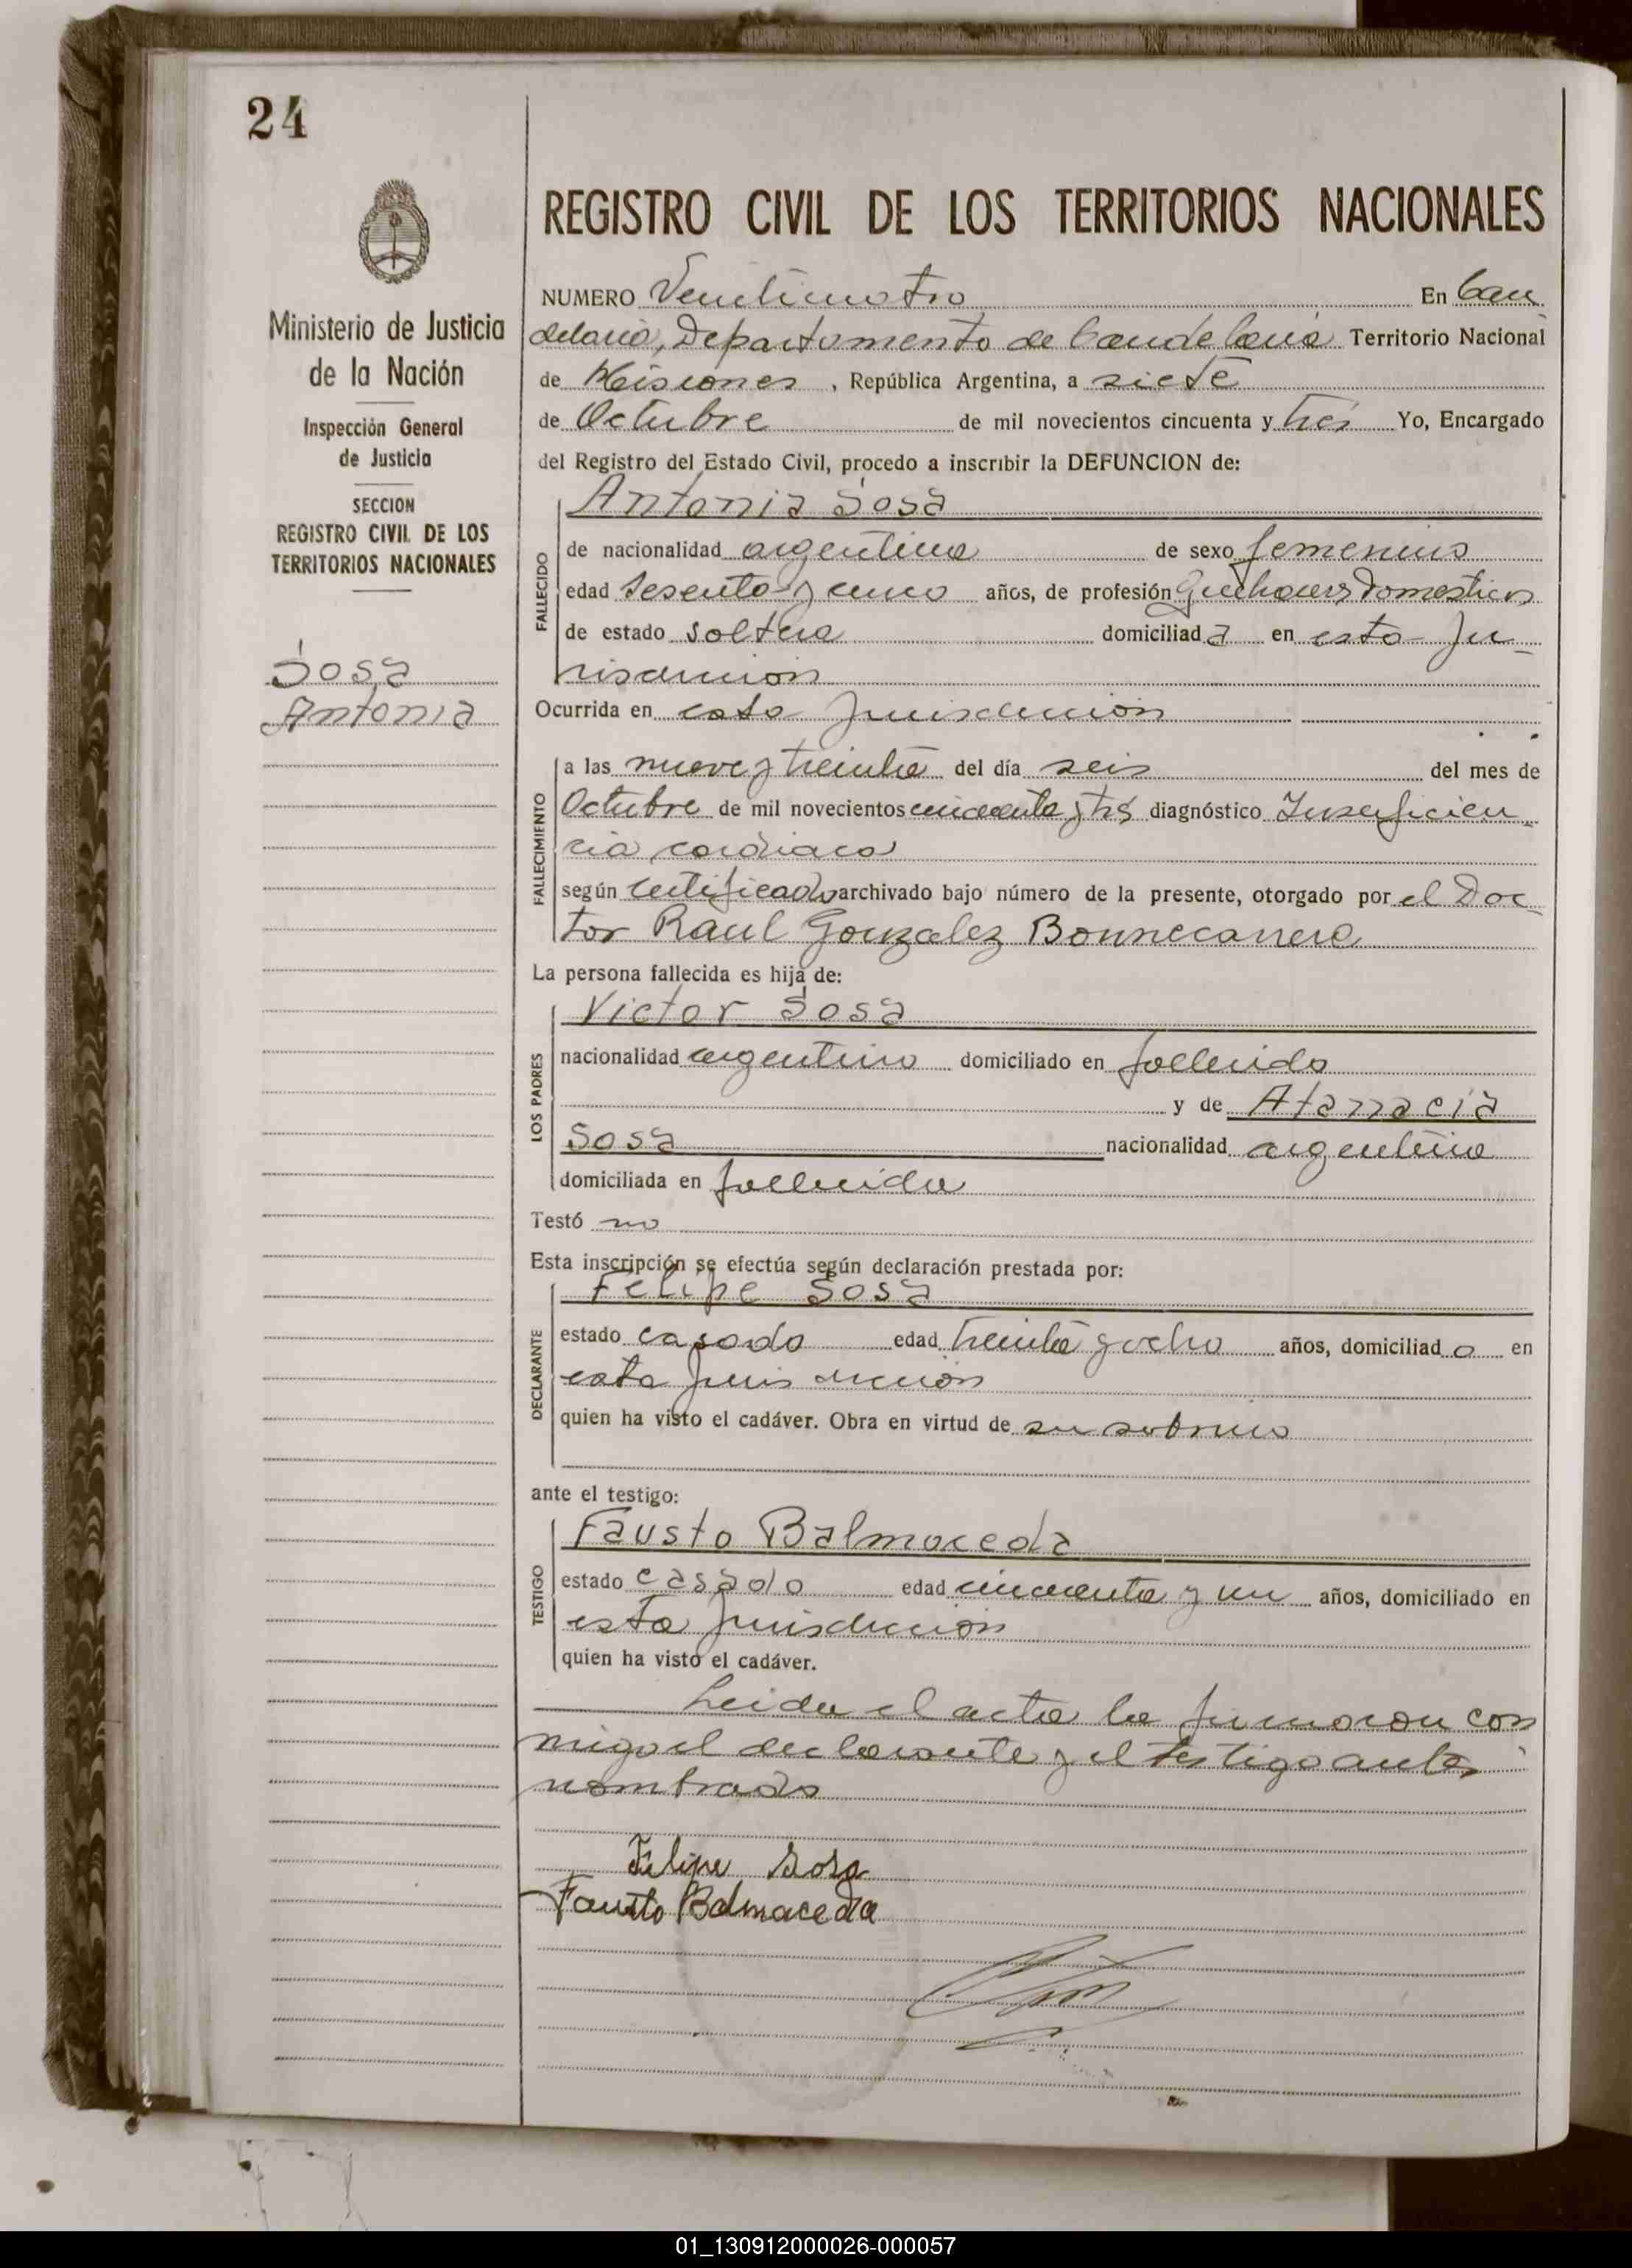 24
REGISTRO CIVIL DE LOS TERRITORIOS NACIONALES
Ministerio de Justicia
de la Nación
Inspección General
de Justicia
SECCION
REGISTRO CIVIL DE LOS
TERRITORIOS NACIONALES
Sosa
Antonia
NUMERO Veinticuatro En Can
delaria, Departamento de Candelaria Territorio Nacional
de Misiones , República Argentina, a siete
de Octubre de mil novecientos cincuenta y tres Yo, Encargado
del Registro del Estado Civil, procedo a inscribir la DEFUNCION de:
Antonia Sosa
FALLECIDO
de nacionalidad argentina de sexo femenino
edad sesenta y cinco años, de profesión Quehaceres Domesticos
de estado soltera domiciliad a en esta Ju-
risdiccion
Ocurrida en esta Jurisdiccion
FALLECIMIENTO
a las nueve y treinta del día seis del mes de
Octubre de mil novecientos cincuenta y tres diagnóstico Insuficien-
cia cardiaca
según certificado archivado bajo número de la presente, otorgado por el Doc-
tor Raul Gonzalez Bonnecarrere
La persona fallecida es hija de:
LOS PADRES
Victor Sosa
nacionalidad argentino domiciliado en fallecido
y de Atanacia
Sosa nacionalidad argentina
domiciliada en fallecida
Testó no
Esta inscripción se efectúa según declaración prestada por:
DECLARANTE
Felipe Sosa
estado casado edad treinta y ocho años, domiciliad o en
esta Jurisdiccion
quien ha visto el cadáver. Obra en virtud de su sobrino
ante el testigo:
TESTIGO
Fausto Balmaceda
estado casado edad cincuenta y un años, domiciliado en
esta Jurisdiccion
quien ha visto el cadáver.
Leida el acta la firmaron con
migo el declarante y el testigo antes
nombrado
Felipe Sosa
Fausto Balmaceda
01_130912000026-000057